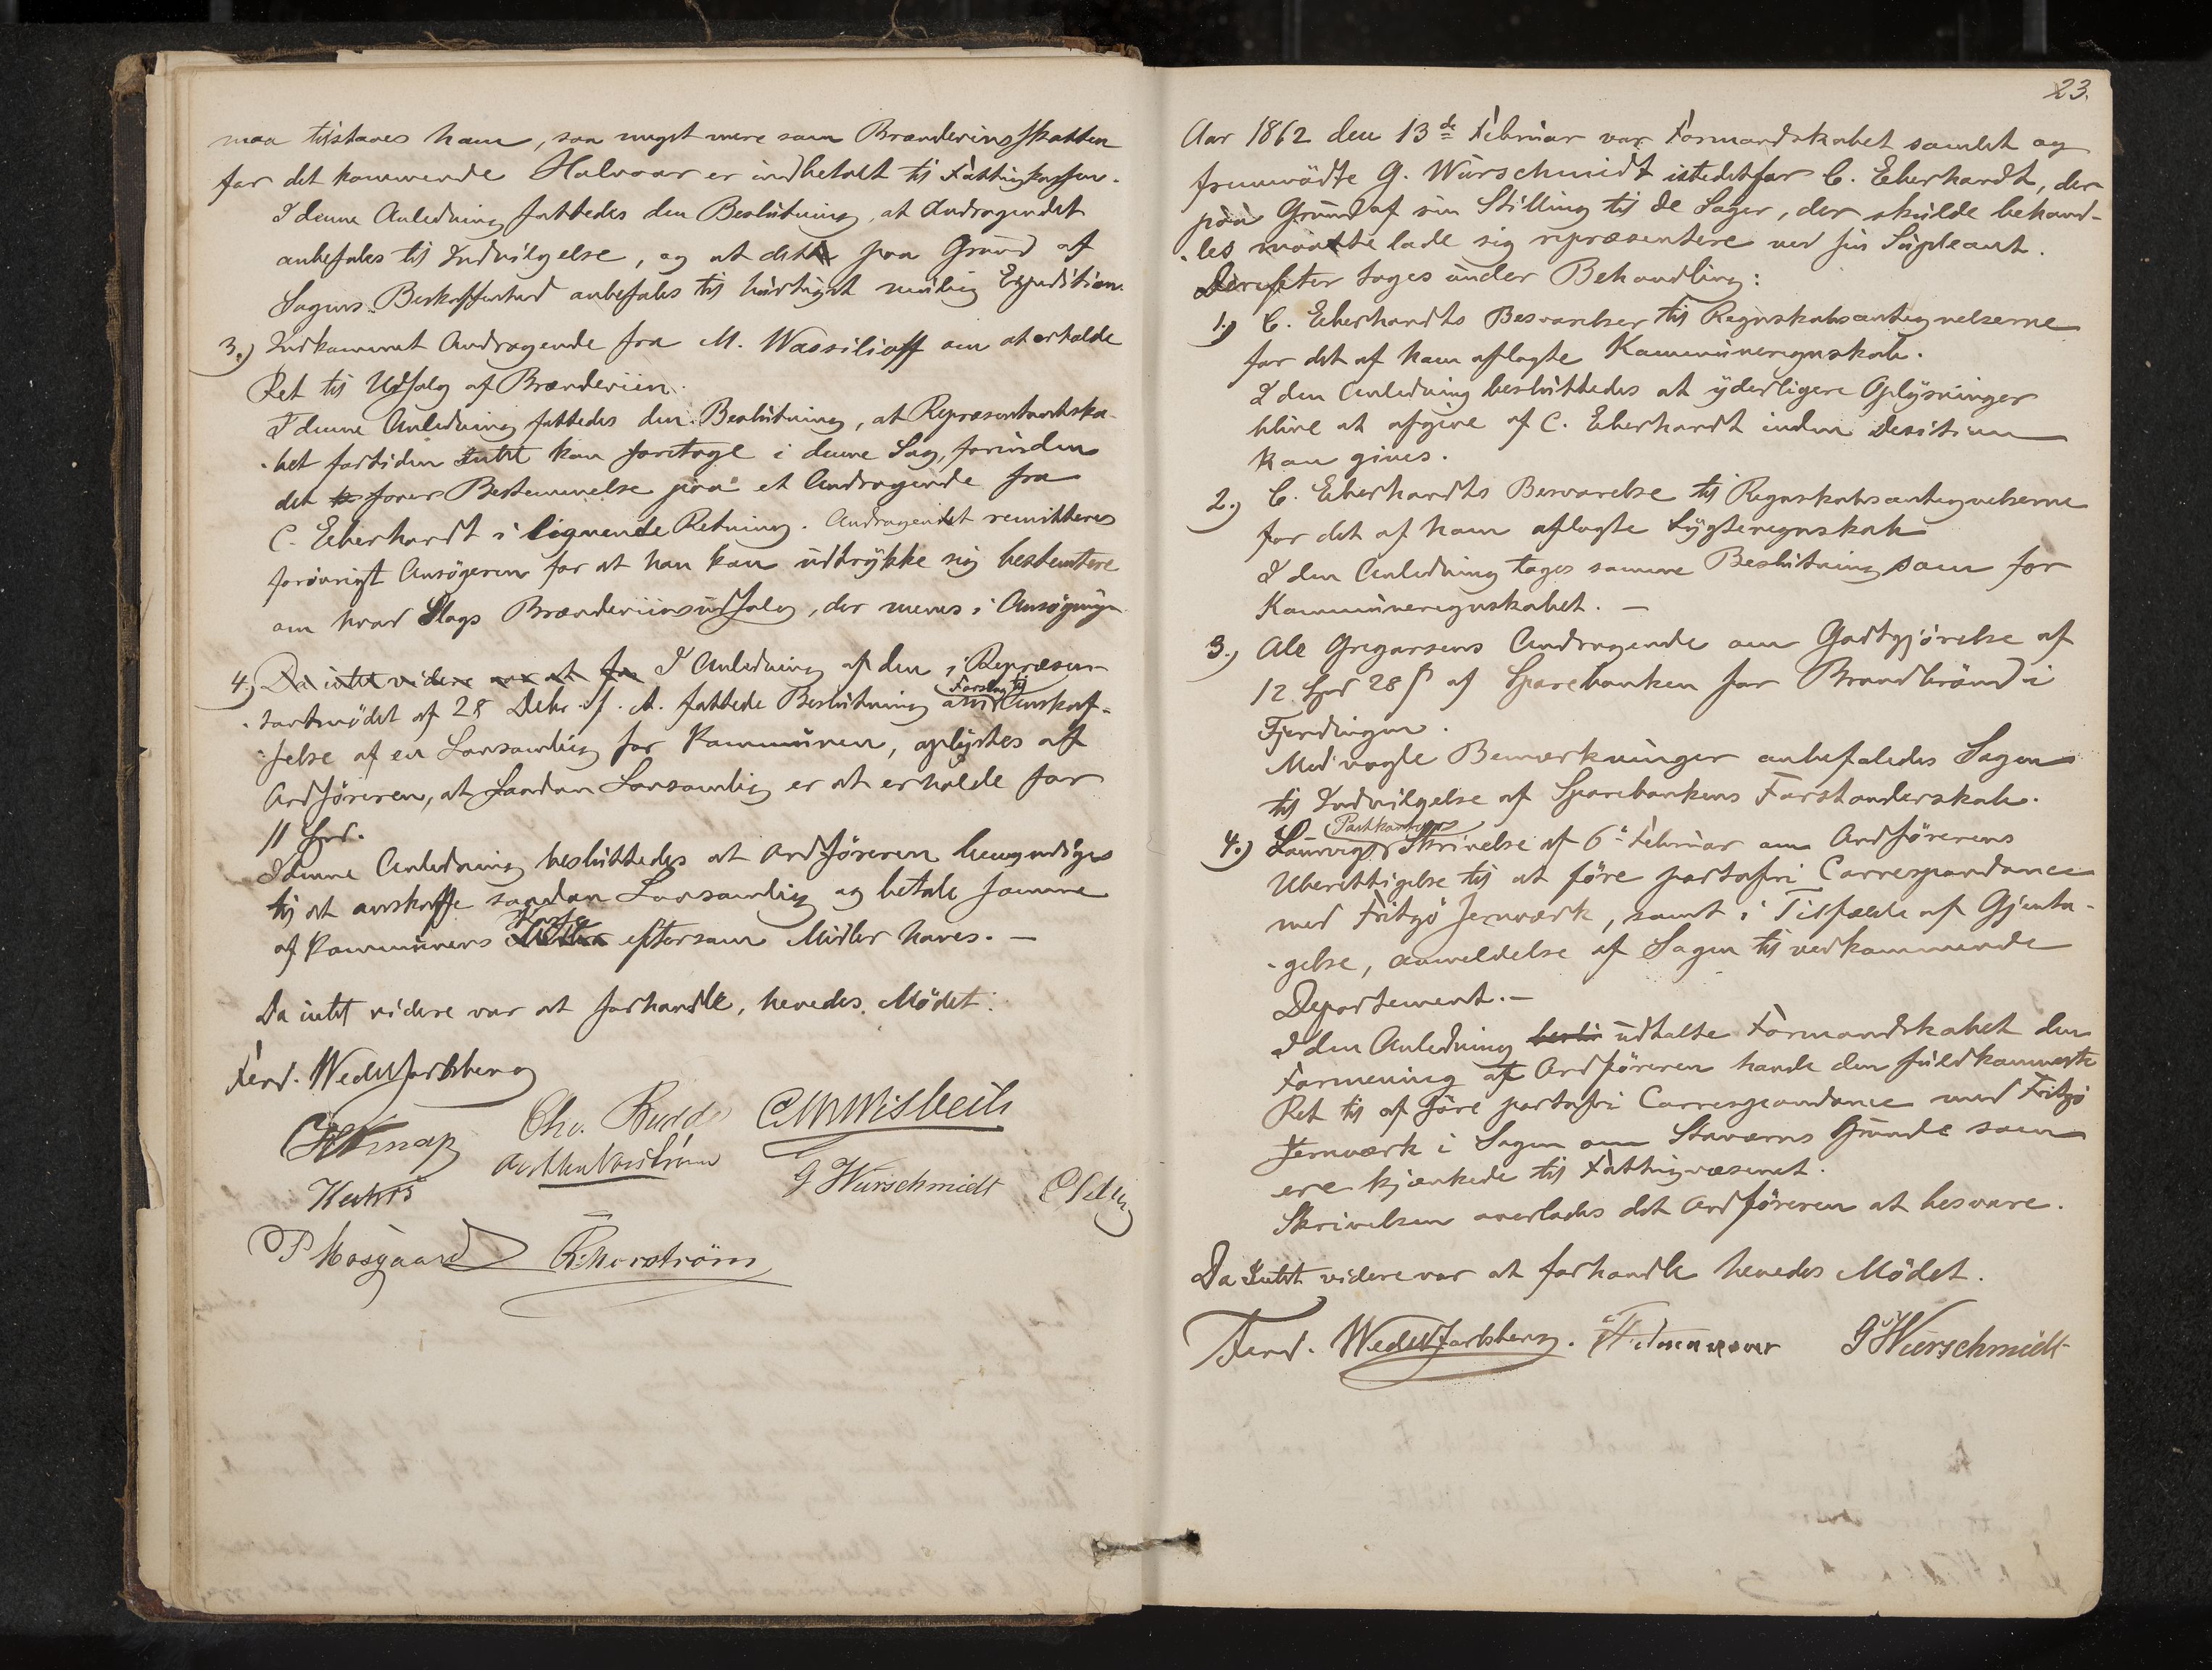 maa tilstaaes ham, saa meget mere som Brændevinsskatten
for det kommende Halvaar er indbetalt til Fattigkassen.
I denne Anledning fattedes den Beslutning, at Andragendet
anbefales til Indvilgelse, og at dette paa Grund af
Sagens Beskaffenhed anbefales til hurtigst mulig Expedition.
3.) Indkommet Andragende fra M. Wassilioff om at erholde
Ret til Udsalg af Brændeviin.
I denne Anledning fattedes den Beslutning, at Repræsentantska-
bet fortiden Intet kan foretage i denne Sag, forinden
det faaer Bestemmelse paa et Andragende fra
C. Eberhardt i lignende Retning. Andragendet remitteres
forøvrigt Ansøgeren for at han kan udtrykke sig bestemtere
om hvad Slags Brændeviinsudsalg, der menes i Ansøgningen
4.) Da intet videre var at for I Anledning af den i Repræsen-
tantmødet af 28 Debr. f. A. fattede Beslutning om Forslag til Anskaf-
felse af en Lovsamling for Kommunen, oplystes af
Ordføreren, at saadan Lovsamling er at erholde for
11 Spd.
I denne Anledning besluttedes at Ordføreren bemyndiges
til at anskaffe saadan Lovsamling og betale samme
af Kommunens Kasse eftersom Midler haves. —
Da intet videre var at forhandle, hevedes Mødet.
Ferd. WedelJarlsberg
Chr. Budde
G Würschmidt
P Mosgaard
Aar 1862 den 13de Februar var Formandskabet samlet og
fremmødte G. Würschmidt istedetfor C. Eberhardt, der
paa Grund af sin Stilling til de Sager, der skulde behand-
les maatte lade sig repræsentere ved sin Supleant.
Derefter toges under Behandling:
1.) C. Eberhardts Besvarelser til Regnskabsantegnelserne
for det af ham aflagte Kommuneregnskab.
I den Anledning besluttedes at yderligere Oplysninger
blive at afgive af C. Eberhardt inden Desition
kan gives.
2.) C. Eberhardts Besvarelse til Regnskabsantegnelserne
for det af ham aflagte Lygteregnskab
I den Anledning tages samme Beslutning som for
Kommuneregnskabet. —
3.) Ole Gregersens Andragende om Godtgjørelse af
12 Spd 28 ß af Sparebanken for Brandbrønd i
Fjerdingen.
Med nogle Bemærkninger anbefaledes Sagen
til Indvilgelse af Sparebankens Forstanderskab.
4.) Laurvigs Postkontors Skrivelse af 6te Februar om Ordførerens
Uberettigelse til at føre portofri Correspondance
med Fritzø Jernværk, samt i Tilfælde af Gjenta-
gelse, anmeldelse af Sagen til vedkommende
Departement. —
I den Anledning beslu udtalte Formandskabet den
Formening at Ordføreren havde den fuldkomneste
Ret til at føre portofri Correspondance med Fritzø
Jernværk i Sagen om Staværns Grunde som
ere skjænkede til Fattigvæsenet.
Skrivelsen overlades det Ordføreren at besvare.
Da Intet videre var at forhandle hevedes Mødet.
Ferd. WedelJarlsberg. G Würschmidt
23.